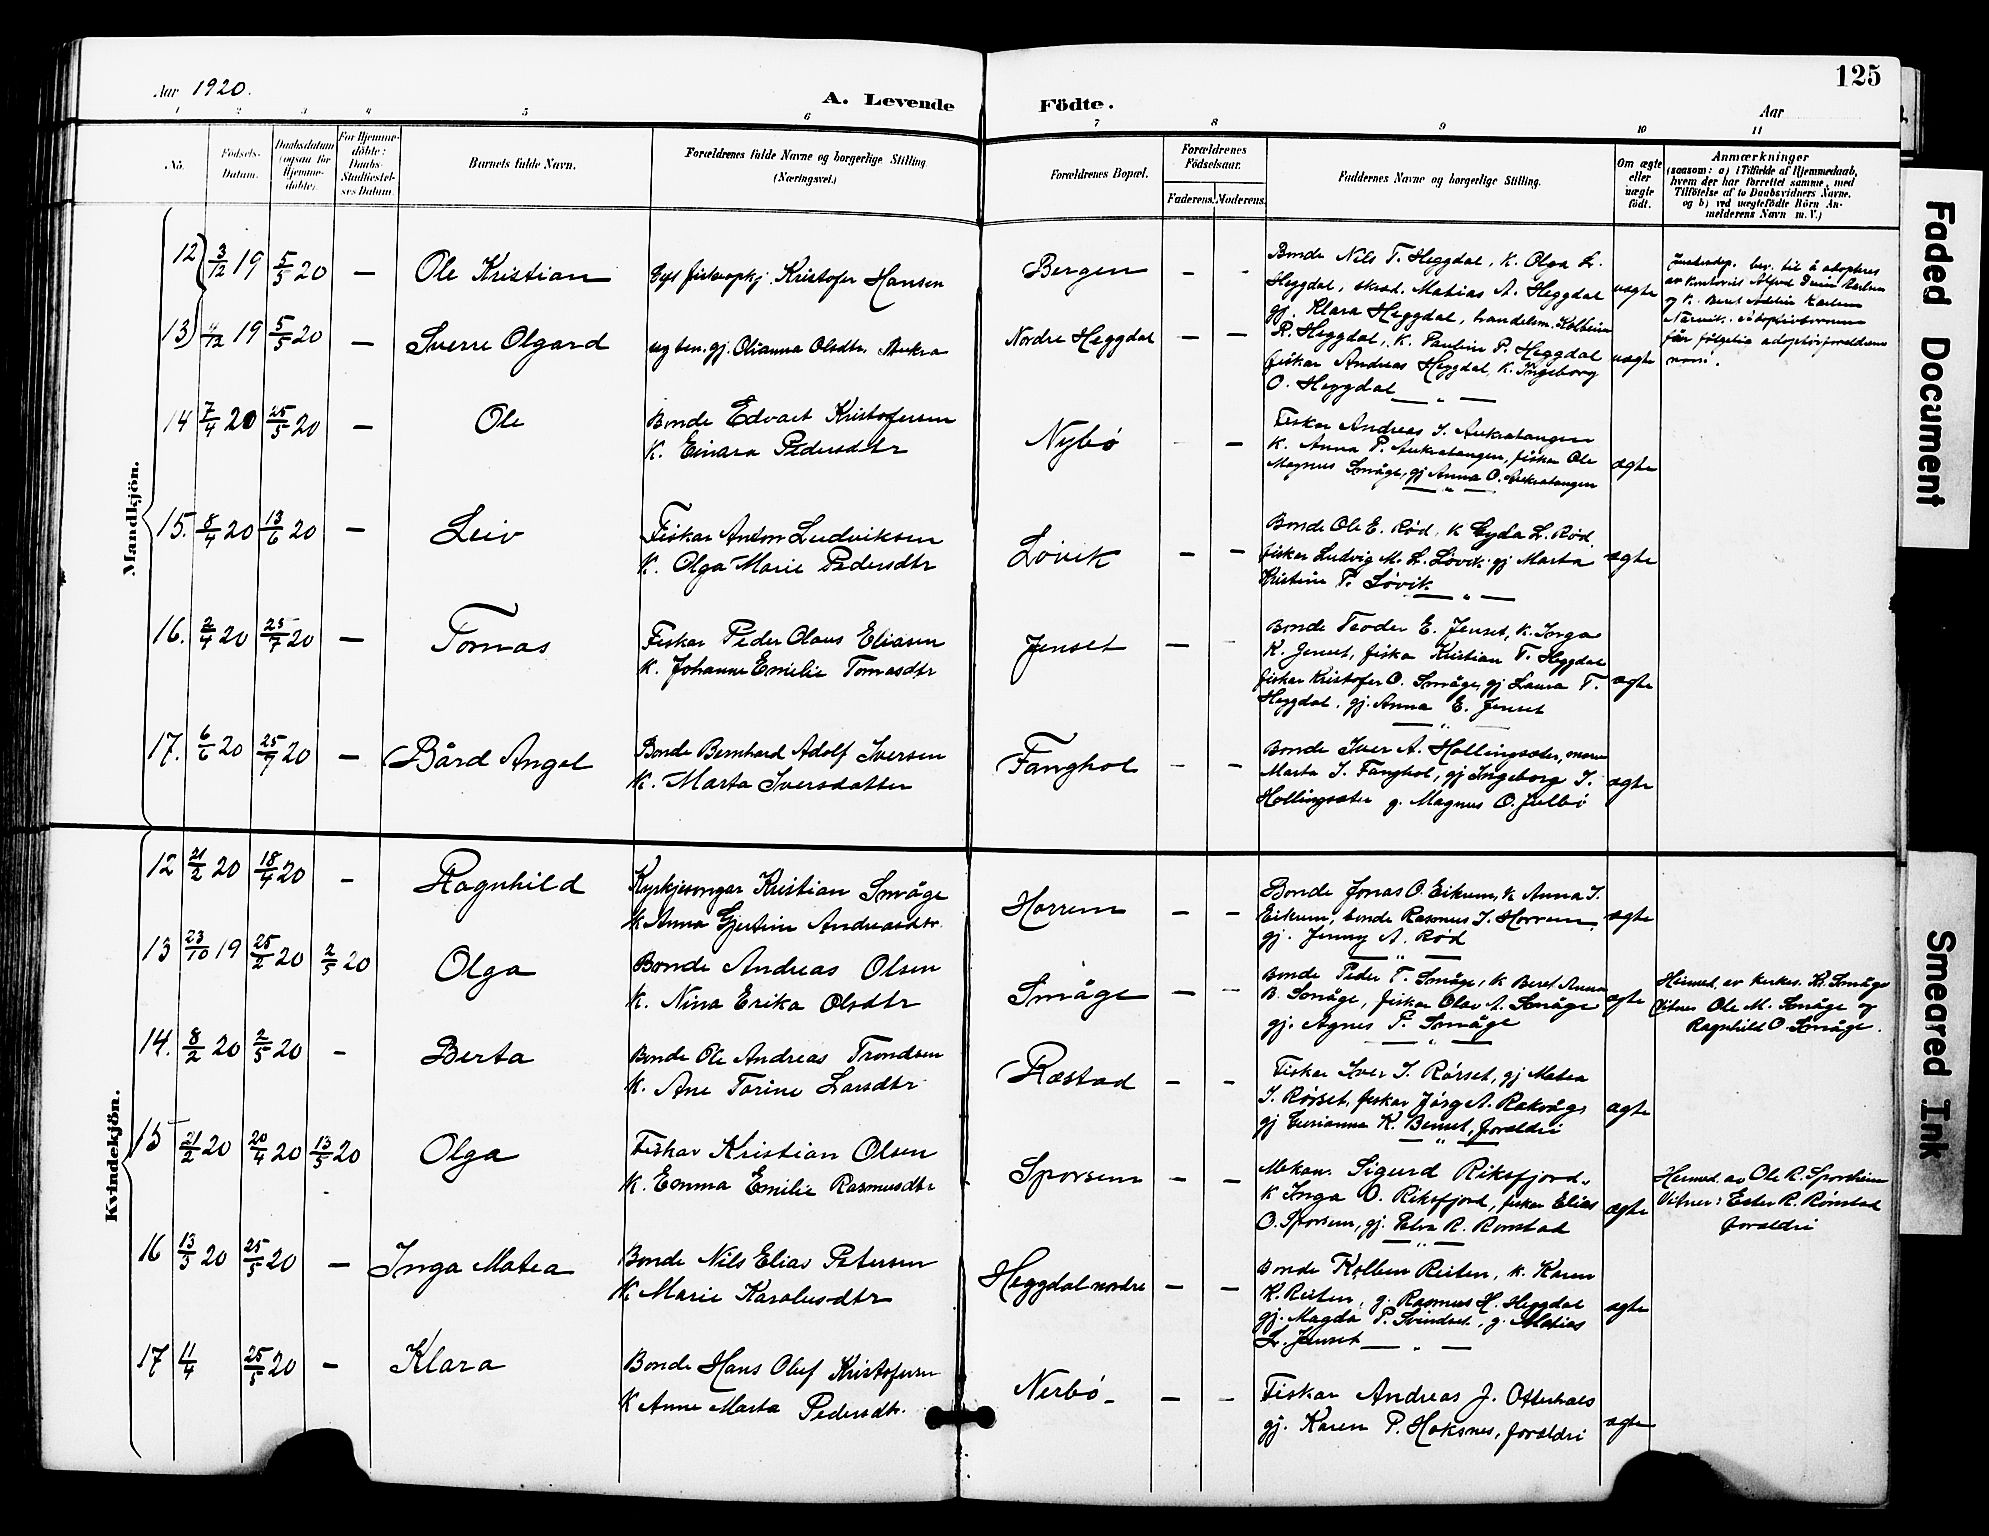 125
Aar 1920.
A. Levende Födte.
Aar
1 2 3 4 5 6 7 8 9 10 11
No.
Födsels-Datum.
Daabsdatum (ogsaa for Hjemme-döbte).
For Hjemme-döbte: Daabs-Stadfæstel-ses Datum.
Barnets fulde Navn.
Forældrenes fulde Navne og borgerlige Stilling (Næringsvei.)
Forældrenes Bopæl.
Forældrenes Födselsaar.
Faderens. Moderens.
Faddernes Navne og borgerlige Stilling.
Om ægte eller uægte födt.
Anmærkninger
(saasom: a) i Tilfælde af Hjemmedaab,
hvem der har forrettet samme, med
Tilföielse af to Daabsvidners Navne.
og b) ved uægtefödte Börn An-
melderens Navn m. V.)
Mandkjön.
12 3/12 19 5/5 20 — Ole Kristian
Kristofer Hansen
Bergen - -
Bonde Nils T. Heggdal, K. Olga L.
Heggdal, Matias A. Heggdal
gj. Klara Heggdal, handelsm. Kolbein
uægte
13 19 5/5 20 — Sverre Olgard
gj. Olianna Olsdtr. Aukra
Nordre Heggdal — —
R. Heggdal, K. Paulin P. Heggdal
fiskar Andreas Heggdal, K. Ingeborg
O. Heggdal
uægte
til å adopteres
av
og K. Beret Karlsen
Narvik.
får følgelig
navn.
14 7/4 20 25/5 20 — Ole
Bonde Edvart Kristofersen
K. Einara Pedersdtr
Nybø —
Fiskar Andreas J. Aukratangen
K. Anna P. Aukratangen, fiskar Ole
Magnus Småge, gj Anna O. Aukratangen
ægte
15. 8/4 20 13/6 20 — Leiv
Fiskar Anton Ludviksen
K. Olga Marie Pedersdtr
Løvik — —
Bonde Ole E. Rød, K Gyda L. Rød
fiskar Ludvig M. L. Løvik. gj Marta
Kristine P. Løvik
ægte
16. 2/4 20 25/7 20 — Tomas
Fiskar Peder Olaus Eliasen
K. Johanne Emilie Tomasdtr
Jenset — -
Bonde Teodor E. Jenset, K. Inga
K. Jenset, fiska Kristian T. Heggdal
fiskar Kristofer O. Småge, gj Laura T.
Heggdal, gj. Anna E. Jenset
ægte
17. 6/6 20 25/7 20 — Bård Angel
Bonde Bernhard Adolf Iversen
K. Marta Iversdatter
Fanghol - —
Bonde Iver A. Hollingsæter,
Marta J. Fanghol, gj Ingeborg I.
Hollingsæter g. Magnus O. Julbø
ægte
Kvindekjön.
12 21/2 20 18/4 20 - Ragnhild
Kyrkjesongar Kristian Småge
K Anna Gjertine Andreasdtr.
Horrem — —
Bonde Jonas O. Eikrem, K Anna J.
Eikrem, bonde Rasmus J. Horrem,
gj. Jenny A. Rød
ægte
13 23/10 19 25/2 20 2/5 20 Olga
Bonde Andreas Olsen
K. Nina Erika Olsdtr
Småge — —
Bonde Peder T. Småge, K Beret Anna
B. Småge, fiskar Olav A. Småge
gj. Agnes P. Småge
ægte
Heimed. av kirkes. K. Småge
Vitner Ole M. Småge og
Ragnhild O. Småge.
14. 8/2 20 2/5 20 - Berta
Bonde Ole Andreas Trondsen
K. Ane Torine Larsdtr
Ræstad — -
Fiskar Iver J. Rørset, gj Matea
J. Rørset, fiskar A. Rakvåg
gj K. foræeldri
ægte
15 21/2 20 20/4 20 13/5 20 Olga
Fiskar Kristian Olsen
K. Emma Emilie Rasmusdtr
Sporsem — —
Mekan. Sigurd Riksfjord.
K Inga O. Riksfjord, fiskar Elias
O. Sporsem, gj. Petra R. Ronstad
ægte
Heimed. av Ole R. Sporsheim
Vitner: Ester R. Rønstad
foraldri
16 13/3 20 25/5 20 — Inga Matea
Bonde Nils Elias Petersen
K Marie Karolusdtr
Heggdal nordre — —
Bonde Kolben Reiten, K. Karen
K. Reiten, g. Rasmus H. Heggdal
gj. Magda P. g. Matias
L. Jenset
ægte
17 11/4 25/5 20 — Klara
Bonde Hans Oluf Kristofersen
K Anne Marta Pedersdtr.
Nerbø - — —
Fiskar Andreas J. Otterhals
gj. Karen P. Hoksnes, foraldri
ægte
Faded Document
Smeared Ink